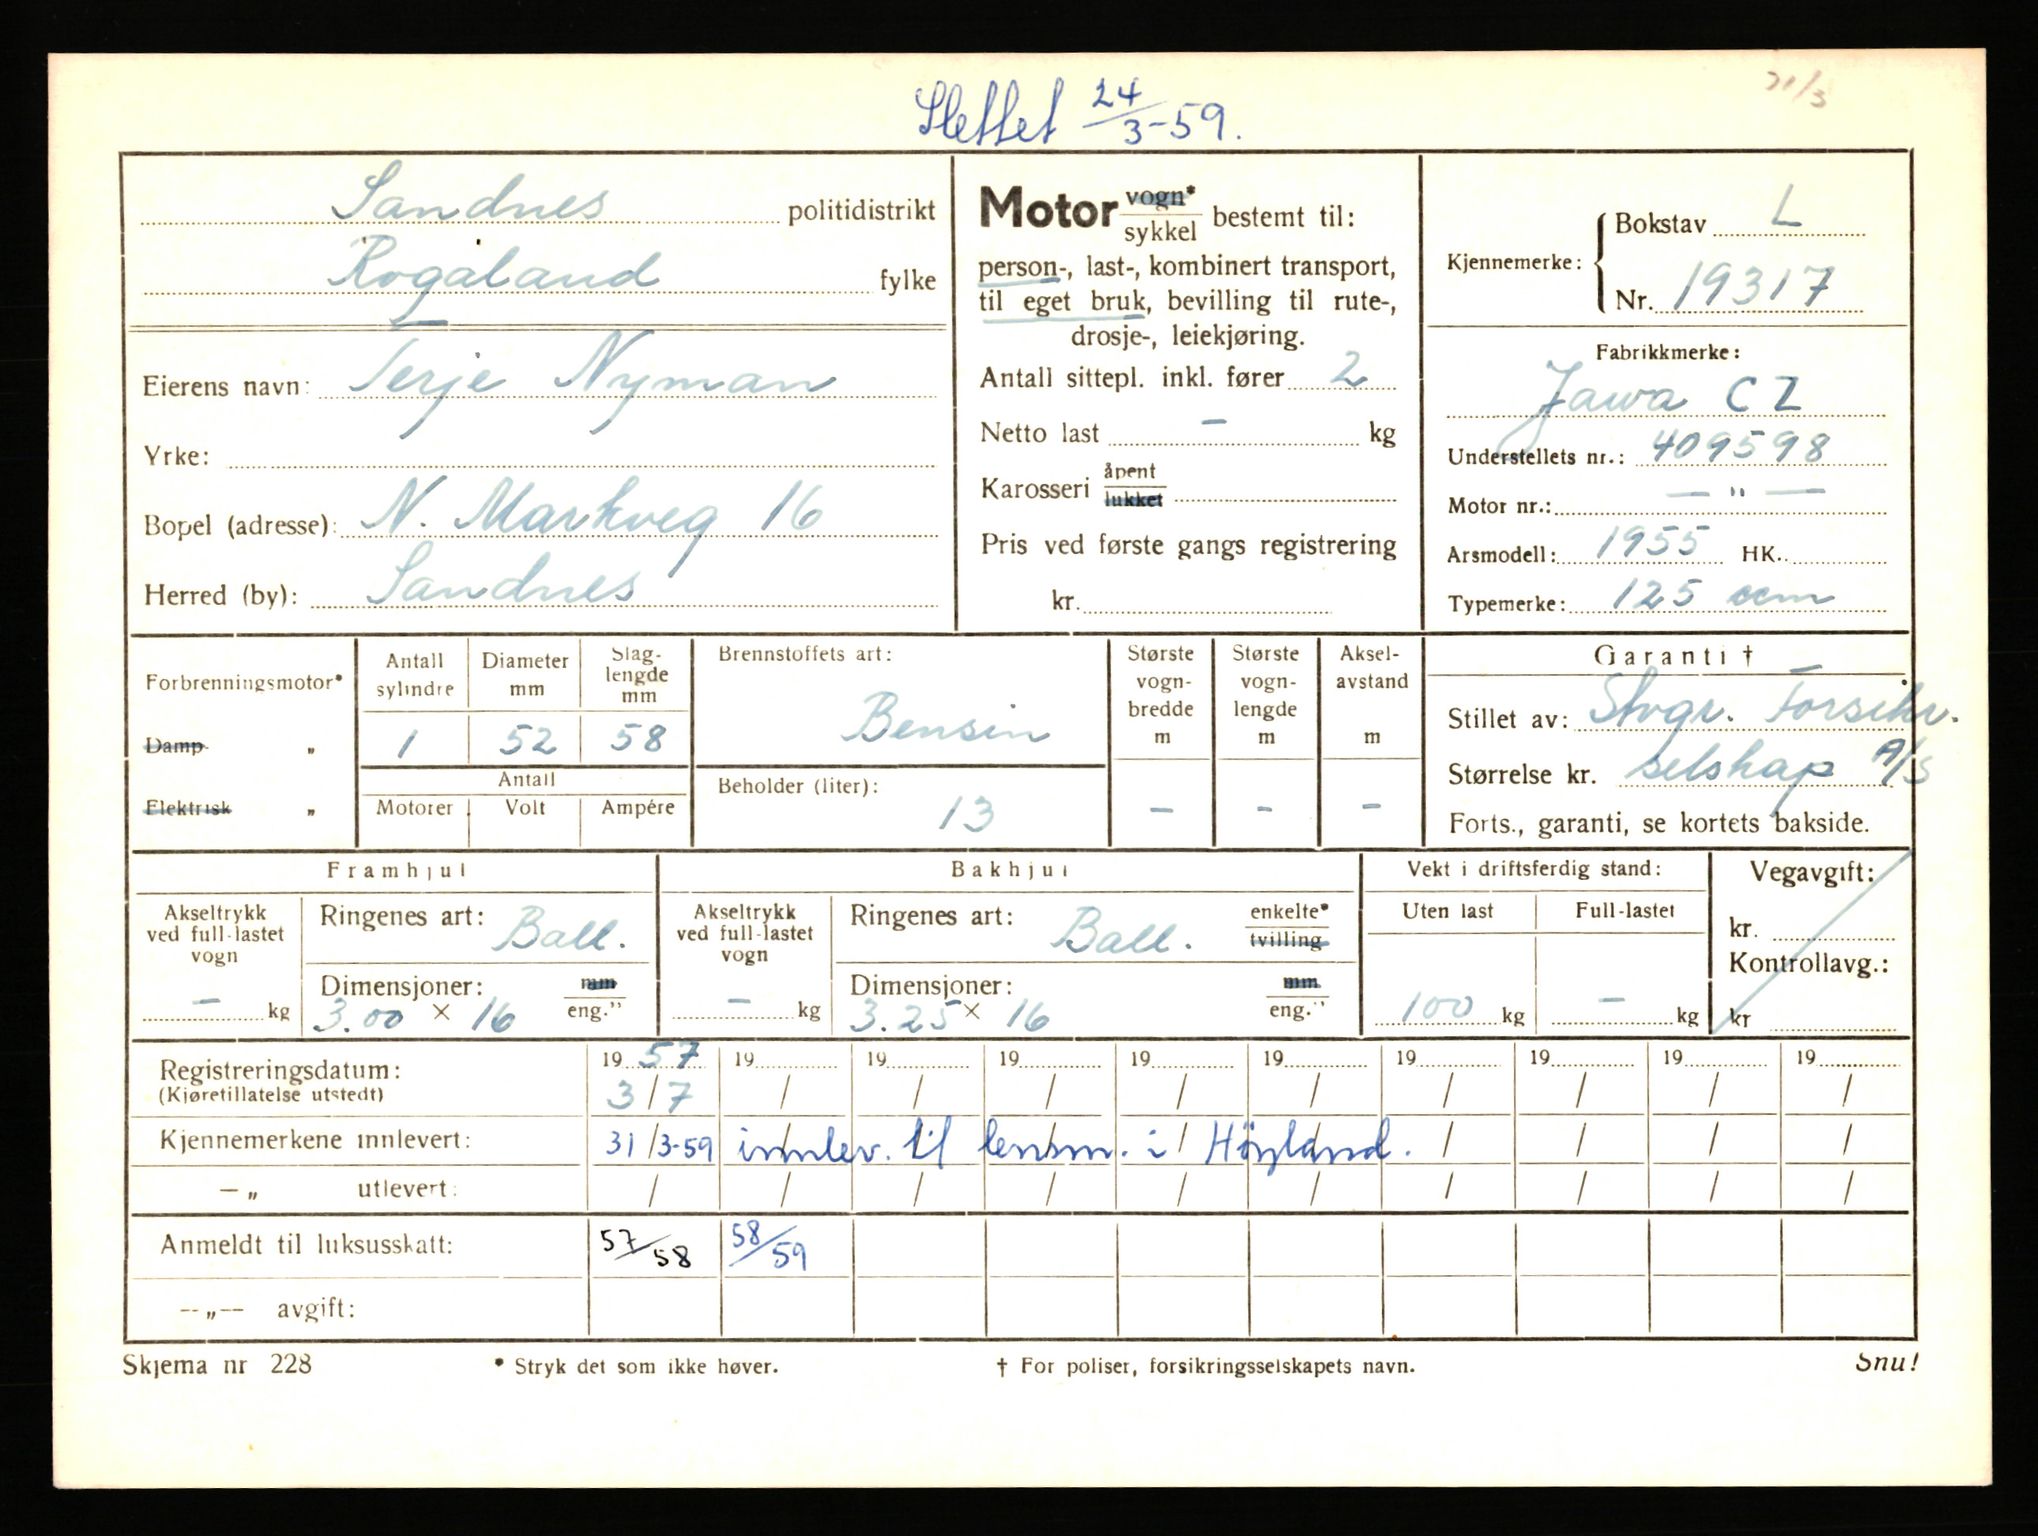 Slettet 24/3-59.
21/3
Sandnes politidistrikt
Rogaland fylke
Eierens navn: Terje Nyman
Yrke:
Bopel (adresse): N. Markveg 16
Herred (by): Sandnes
Motor vogn* / sykkel bestemt til:
person-, last-, kombinert transport,
til eget bruk, bevilling til rute-,
drosje-, leiekjøring.
Antall sittepl. inkl. fører 2
Netto last - kg
Karosseri åpent / lukket
Pris ved første gangs registrering
kr.
Kjennemerke: Bokstav L
Nr. 19317
Fabrikkmerke:
Jawa CZ
Understellets nr.: 409598
Motor nr.: — " —
Arsmodell: 1955 HK.
Typemerke: 125 ccm
Forbrenningsmotor*
Damp "
Elektrisk "
Antall sylindre Diameter mm Slag-lengde mm
1 52 58
Antall
Motorer Volt Ampére
Brennstoffets art:
Bensin
Beholder (liter):
13
Største vogn-bredde m Største vogn-lengde m Aksel-avstand m
- - -
Garanti †
Stillet av: Stvgr. Forsikr.
Størrelse kr. selskap A/S
Forts., garanti, se kortets bakside.
Framhjul
Akseltrykk ved full-lastet vogn
- kg
Ringenes art: Ball.
Dimensjoner: mm / eng."
3.00 × 16
Bakhjul
Akseltrykk ved full-lastet vogn
- kg
Ringenes art: Ball. enkelte* / tvilling
Dimensjoner: mm / eng."
3.25 × 16
Vekt i driftsferdig stand:
Uten last Full-lastet
100 kg - kg
Vegavgift:
kr.
Kontrollavg.:
kr
Registreringsdatum: 19 57 19 19 19 19 19 19 19 19 19
(Kjøretillatelse utstedt) 3/7 / / / / / / / / /
Kjennemerkene innlevert: 31/3-59 innlev. til lensm. i Höyland.
— „ utlevert: / / / / / / / / / /
Anmeldt til luksusskatt: 57/58 58/59
--„-- avgift:
Skjema nr 228 * Stryk det som ikke høver. † For poliser, forsikringsselskapets navn. Snu!